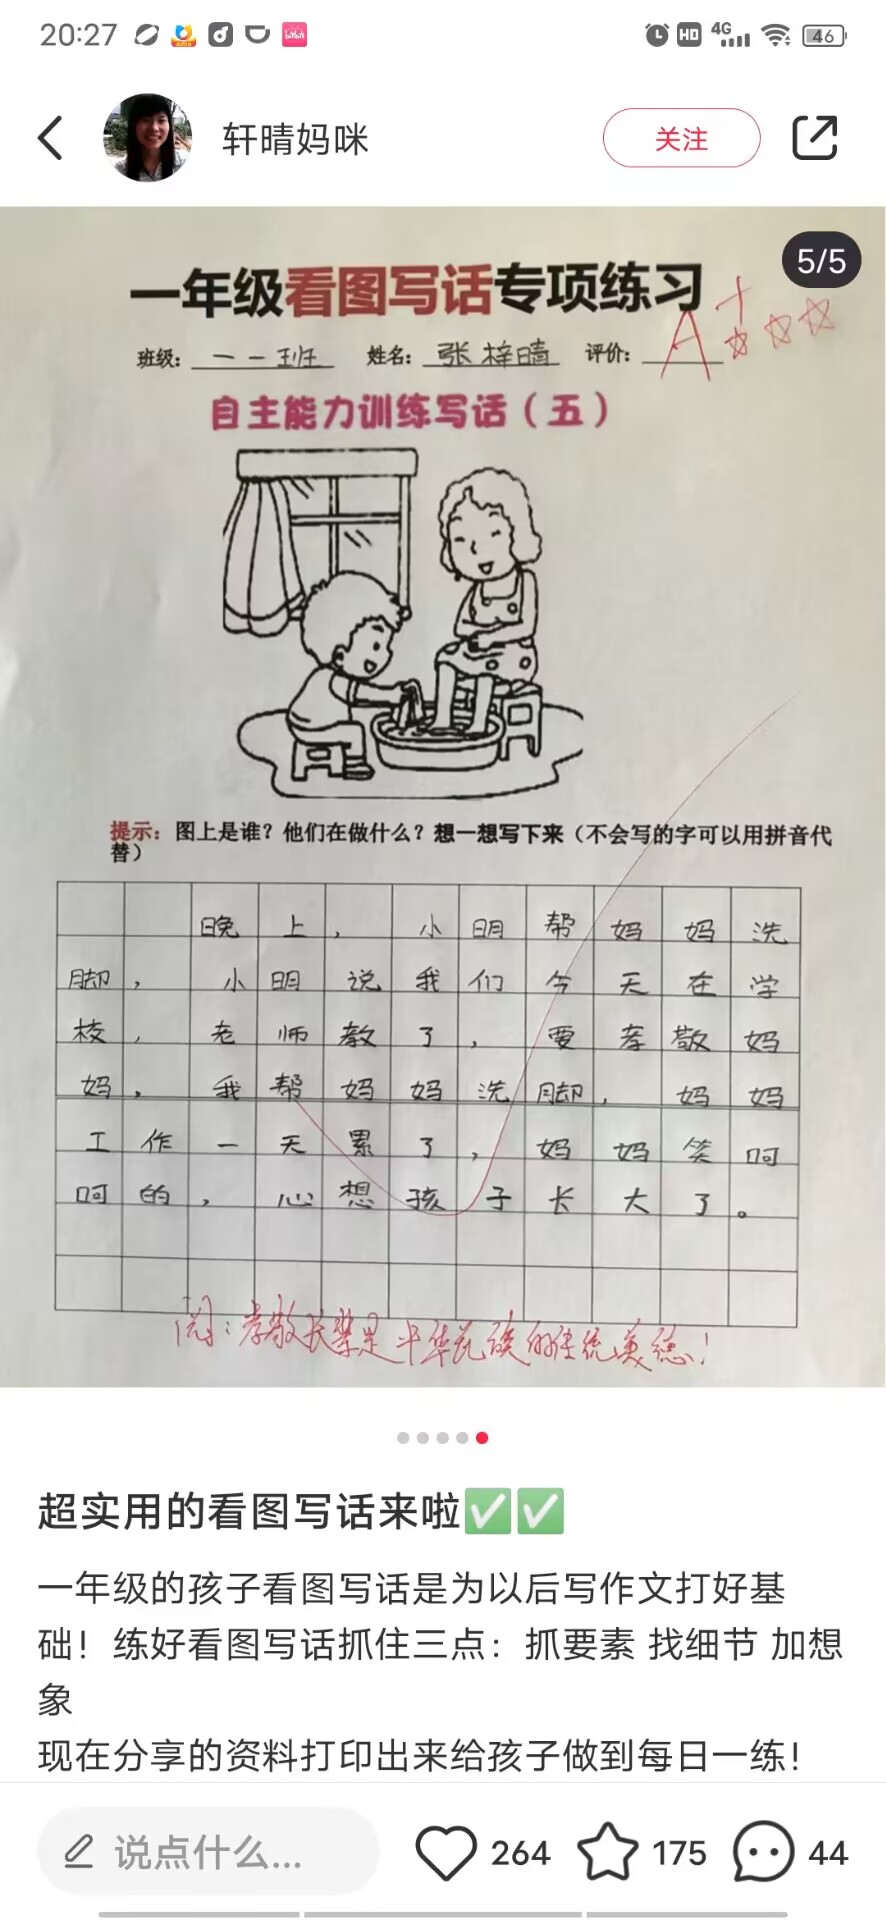 20:27
HD 4G 46
轩晴妈咪
关注
5/5
一年级看图写话专项练习
班级：一一班 姓名：张梓晴 评价：A+
自主能力训练写话（五）
提示：图上是谁？他们在做什么？想一想写下来（不会写的字可以用拼音代
替）
晚上，小明帮妈妈洗
脚，小明说我们今天在学
校，老师教了，要孝敬妈
妈，我帮妈妈洗脚，妈妈
工作一天累了，妈妈笑呵
呵的，心想孩子长大了。
孝敬长辈是中华民族的传统美德！
超实用的看图写话来啦✅✅
一年级的孩子看图写话是为以后写作文打好基
础！练好看图写话抓住三点：抓要素 找细节 加想
象
现在分享的资料打印出来给孩子做到每日一练！
说点什么...
264
175
44